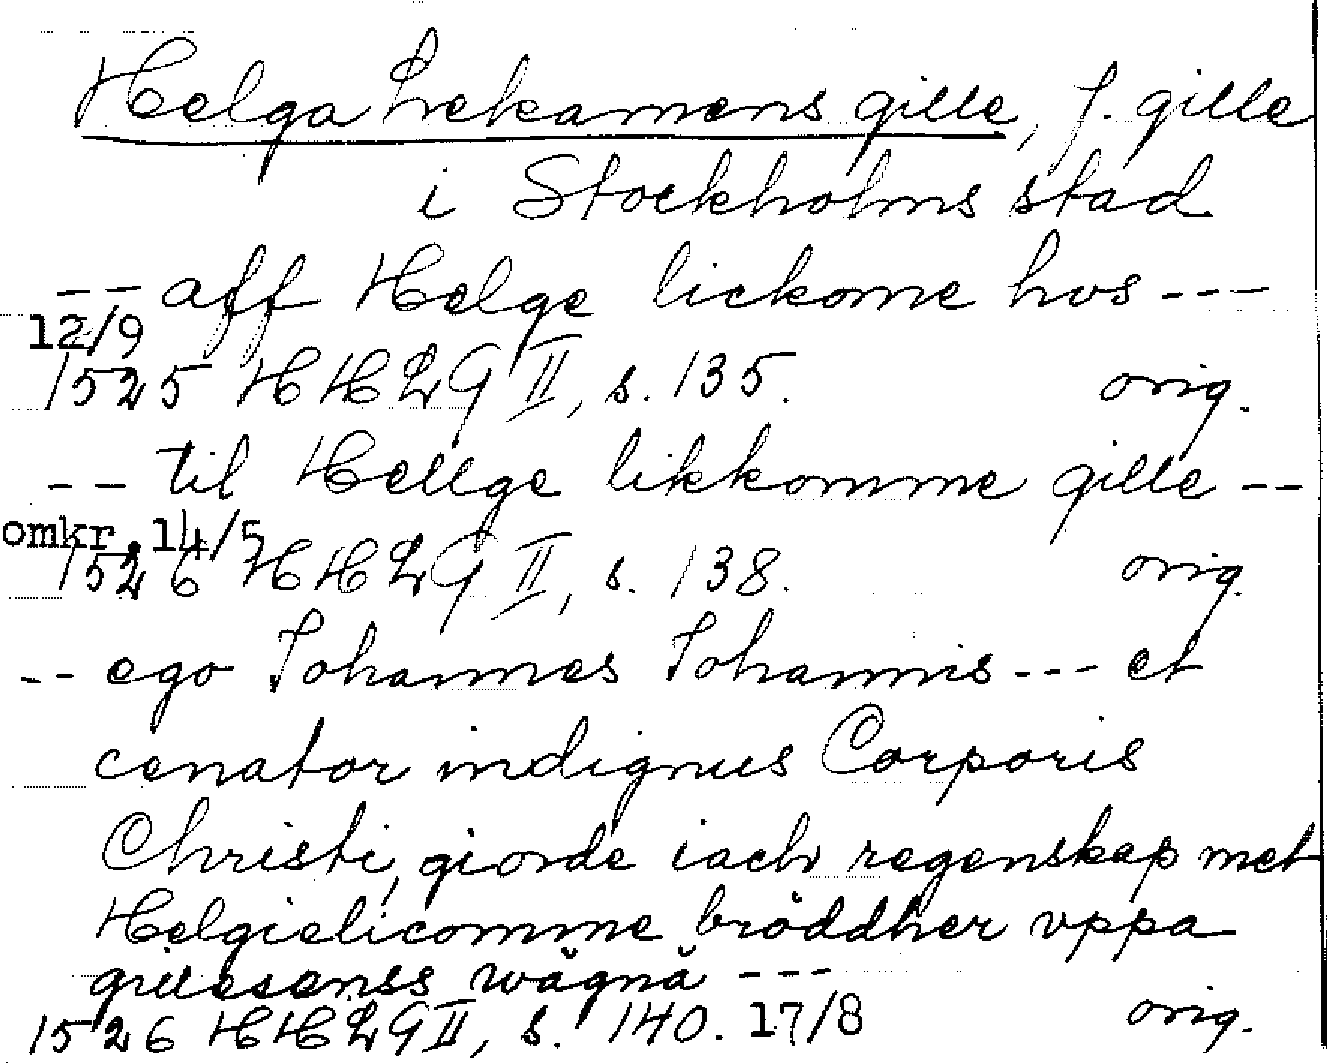 Helga Lekamens gille, f. gille
i Stockholms stad
-- aff Helge lickome hvs ---
12/9
1525 HHLG II, s. 135. orig.
-- til Hellge likkomme gille --
omkr. 14/5
1526 HHLG II, s. 138. orig.
-- ego Johannes Johannis --- et
cenator indignus Corporis
Christi, giorde iach regenskap met
Helgielicomme bröddher vppa
gillesenss wägnä ---
1526 HHLG II, s. 140. 17/8 orig.